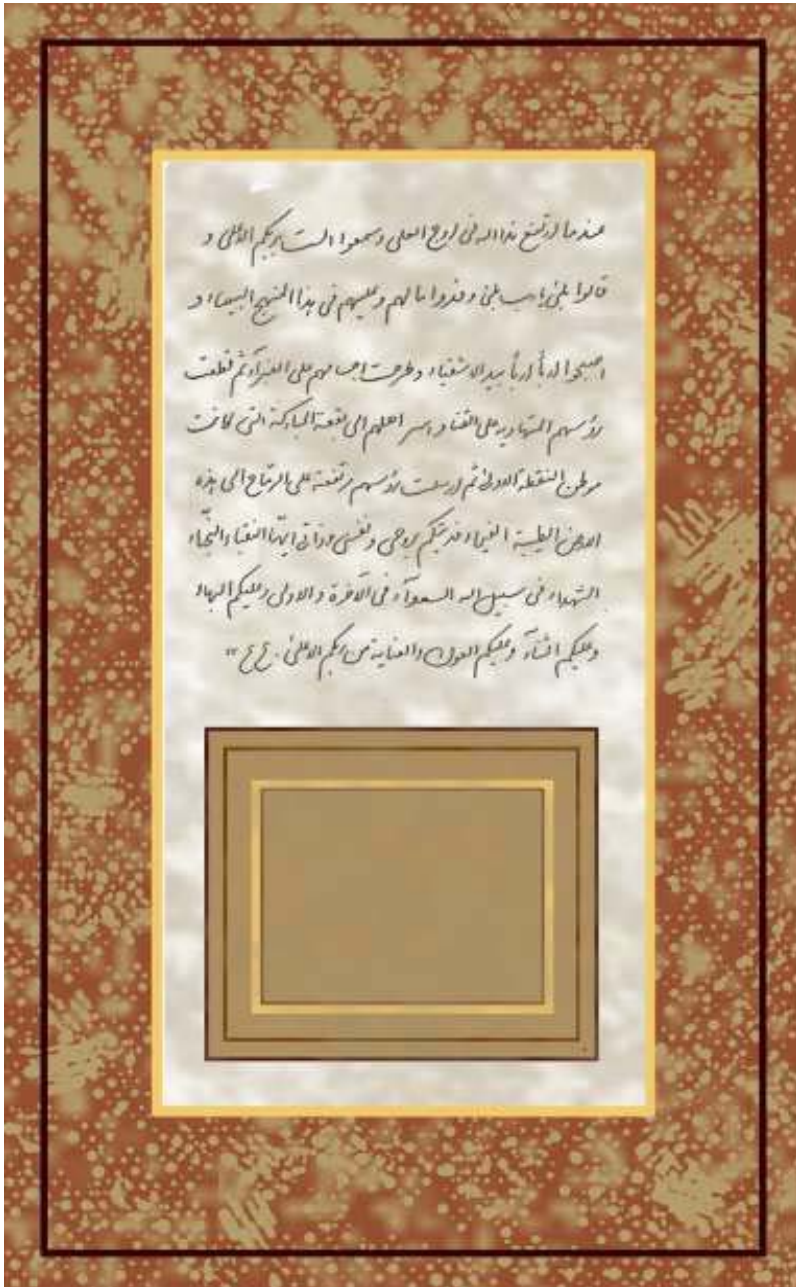 عندما ارتفع نداء الله فی اوج العلی و سمعوا الست بربکم الاعلی و
قالوا بلی یا رب بلی و فدوا مالهم و علیهم فی هذا المنهج البیضاء و
اصبحوا ارباً ارباً بید الاشقیاء و طرحت اجسامهم علی الغبرآء ثم قطعت
رؤسهم المتهادیه علی القنا و اسر اهلهم الی بقعة المبارکة التی کانت
موطن النقطة الاولی ثم ارسلت رؤسهم مرتفعة علی الرماح الی هذه
الارض الطیبة الفیحاء فدیتکم بروحی و نفسی و ذاتی ایّها النقباء النجباء
الشهداء فی سبیل الله السعدآء فی الآخرة و الاولی و علیکم البهاء
و علیکم الثنآء و علیکم العون و العنایة من ربکم الاعلی . ع ع "